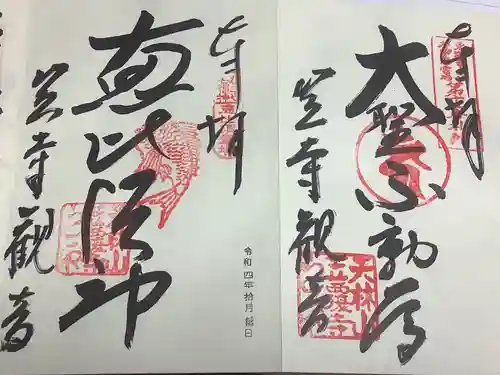 奉拝
大聖不動尊
笠寺觀音
天林山
笠覆寺
奉拝
恵比須神
笠寺觀音
令和四年拾月 日